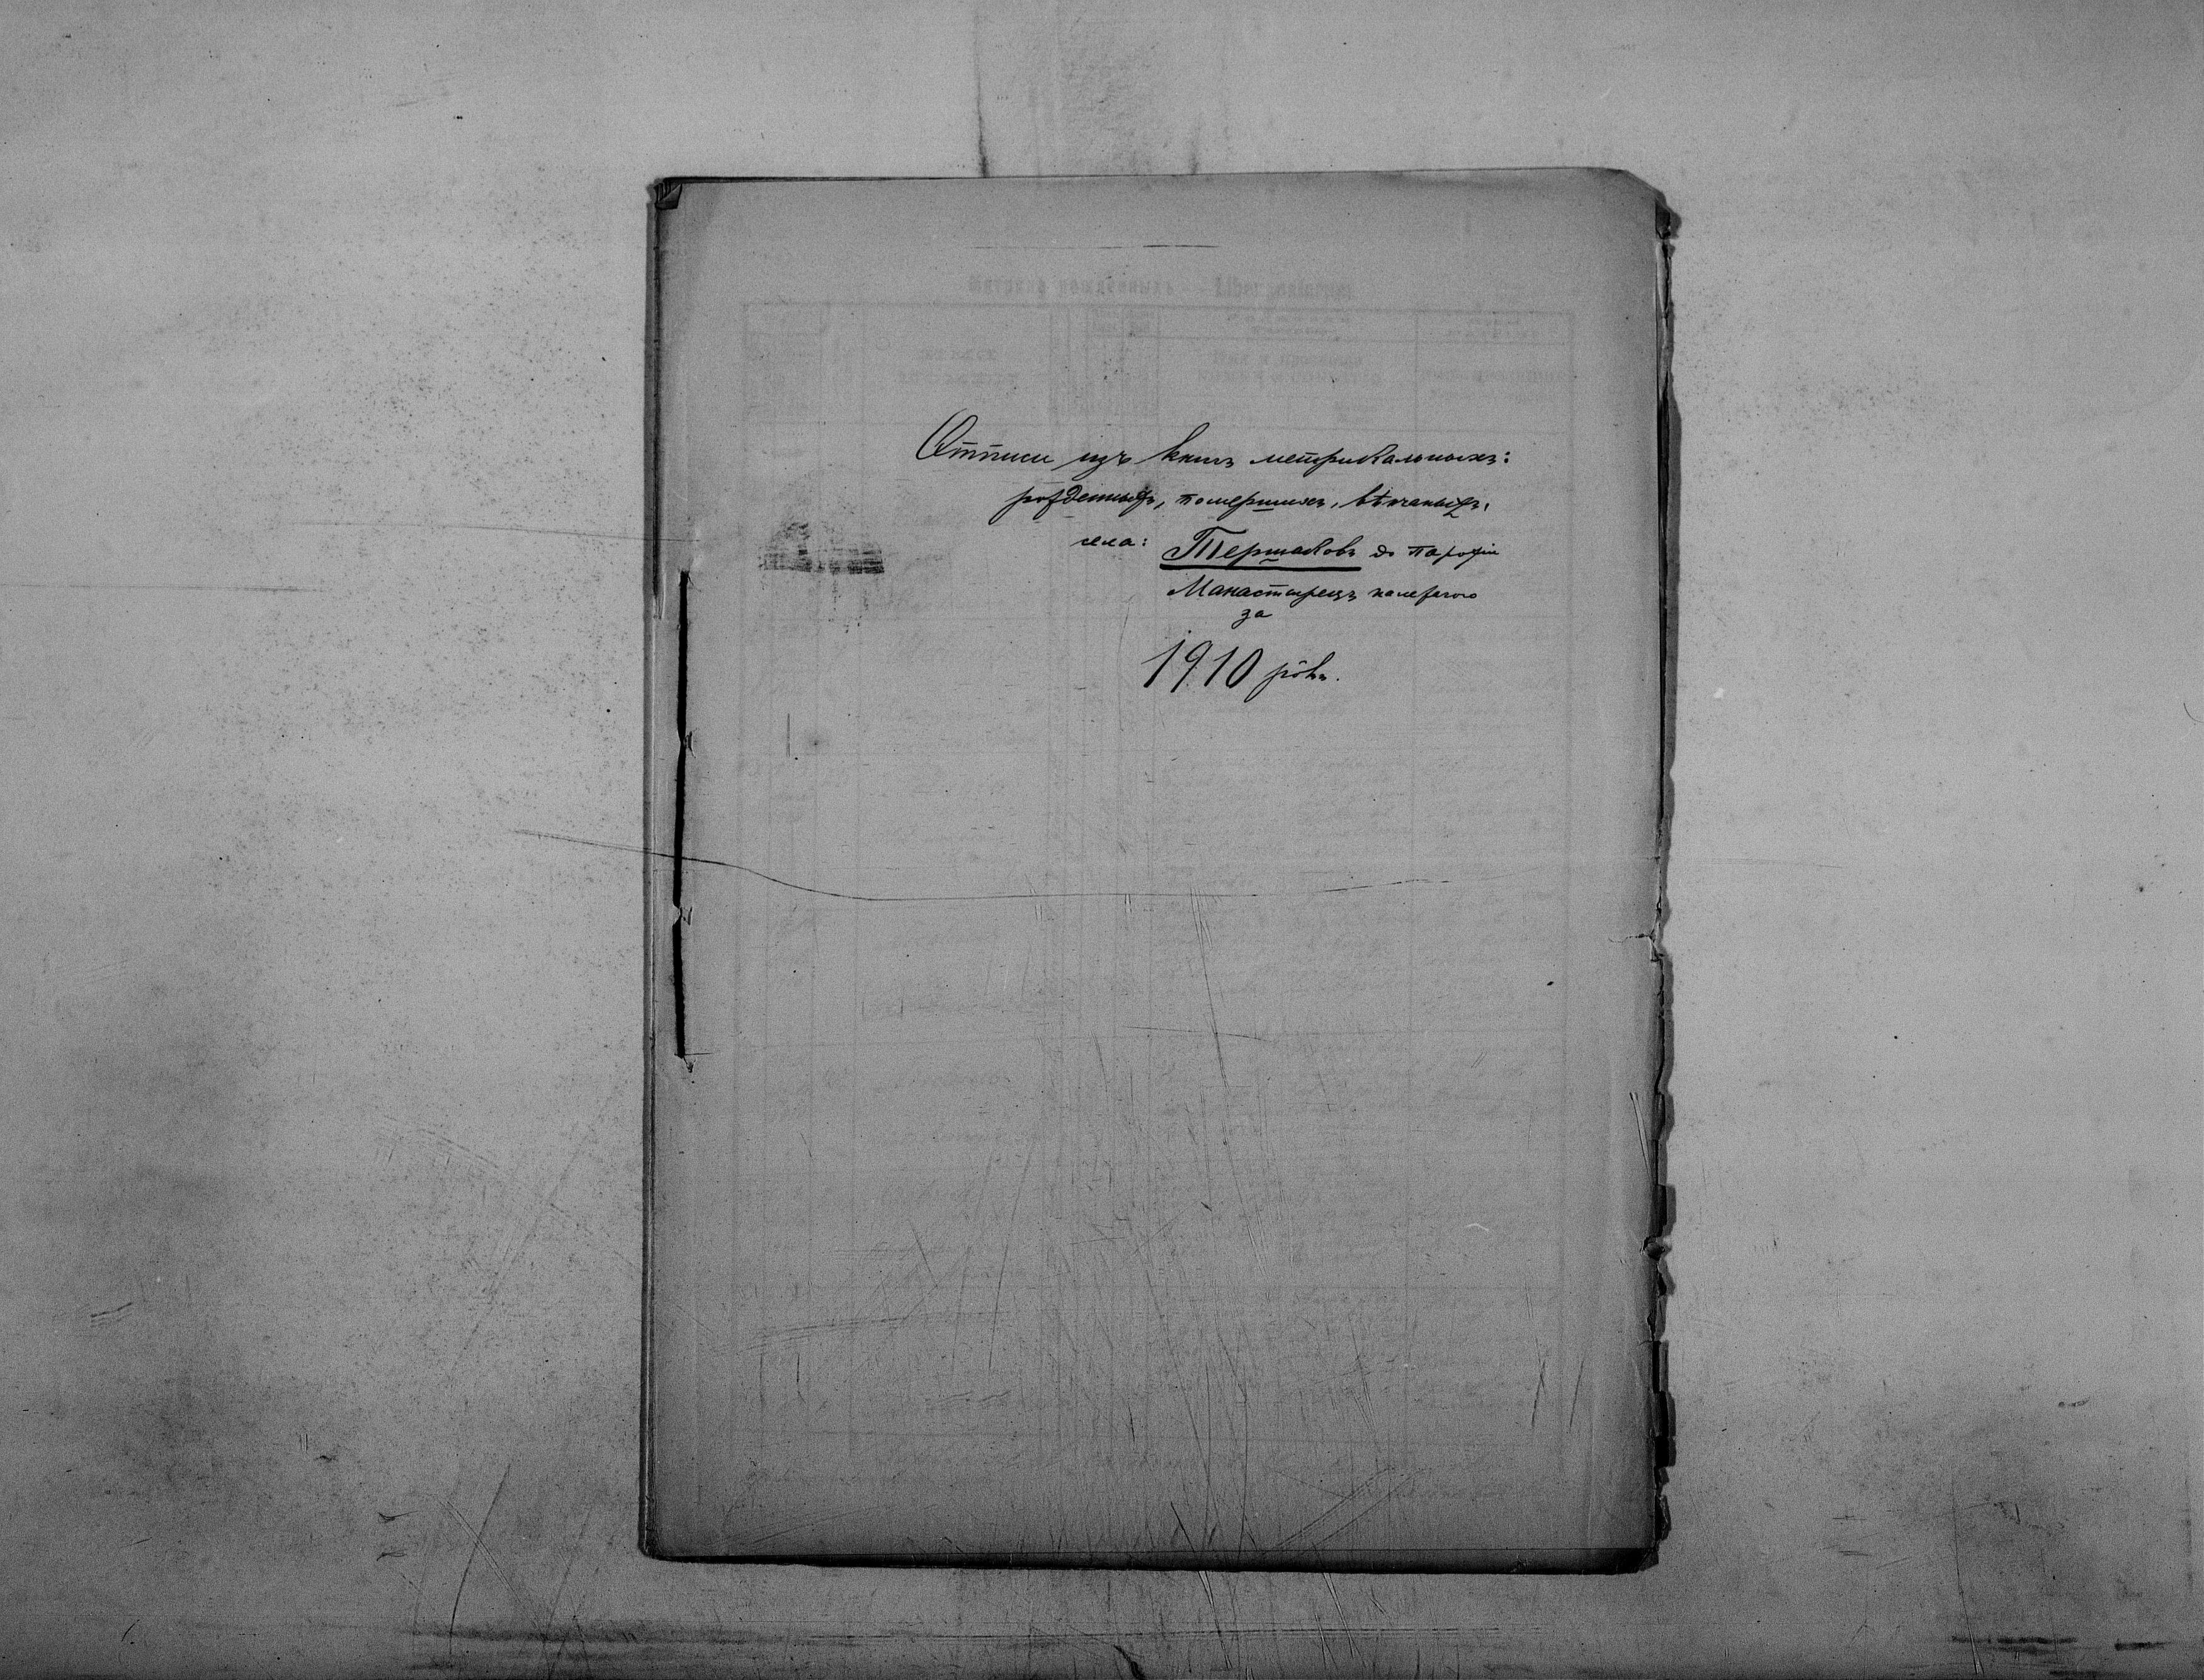 Отписи изъ книгъ метрикальныхъ:
рожденныхъ, помершихъ, вѣнчаныхъ,
села: Тершаковъ до парохіи
Манастырецъ належачого
за
1910 рôкъ.